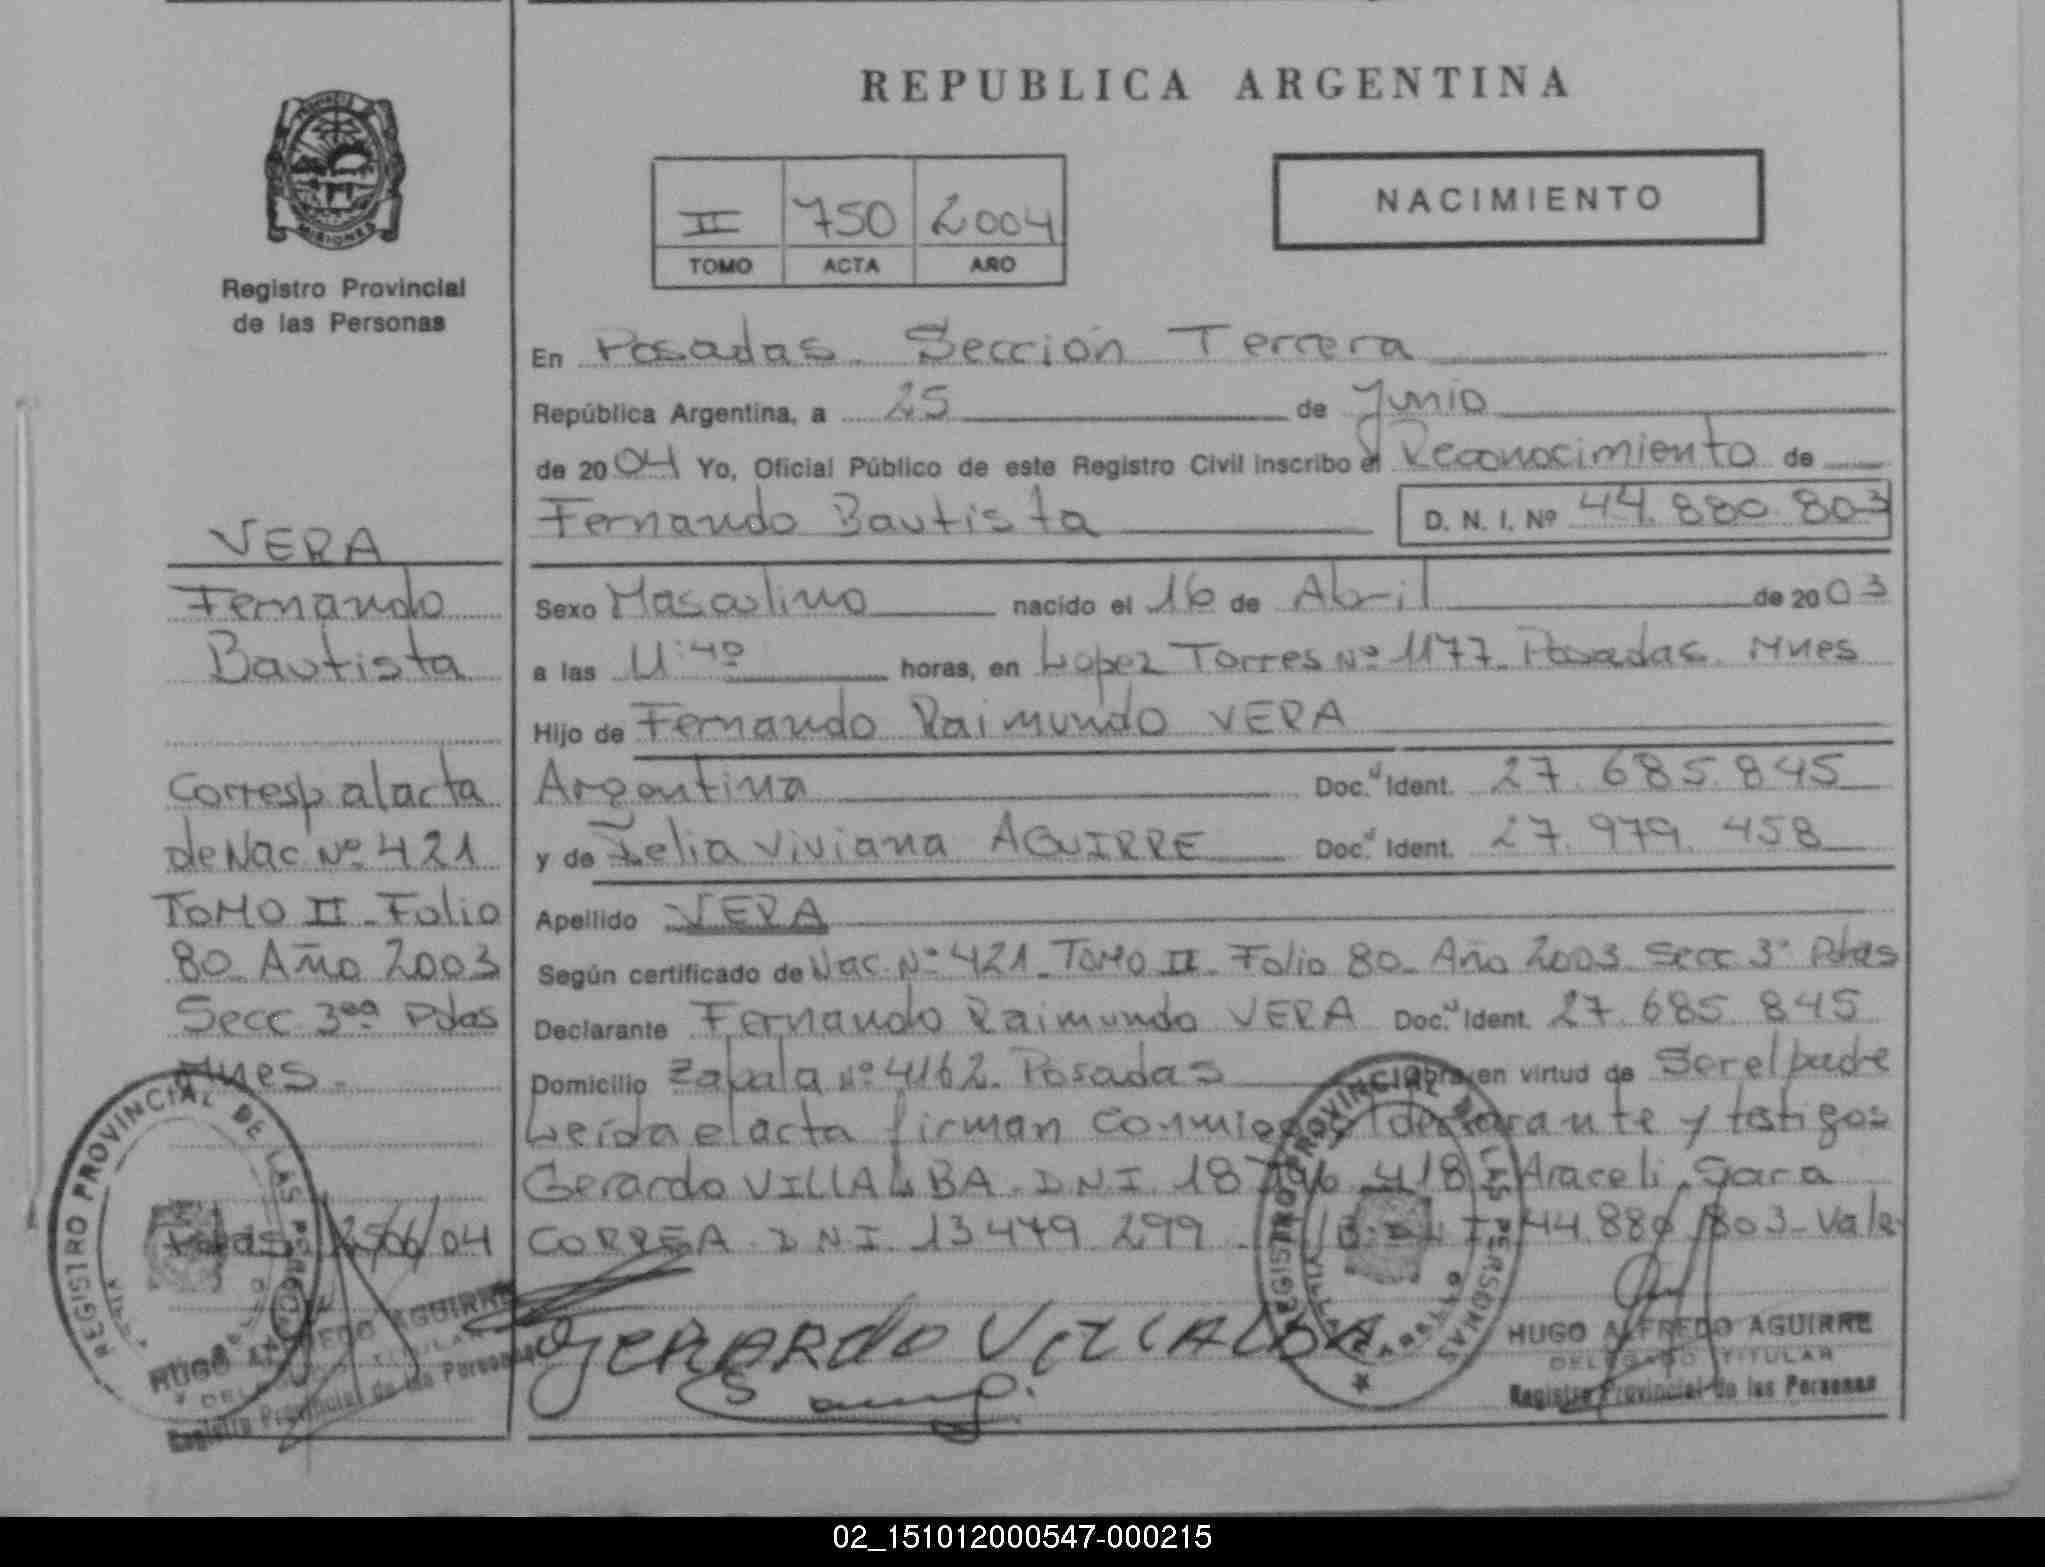 REPUBLICA ARGENTINA
MISIONES
Registro Provincial
de las Personas
II 750 2004
TOMO ACTA AÑO
NACIMIENTO
En Posadas. Sección Tercera
República Argentina, a 25 de Junio
de 2004 Yo, Oficial Público de este Registro Civil inscribo el Reconocimiento de
Fernando Bautista D. N. I. Nº 44.880.803
Sexo Masculino nacido el 16 de Abril de 2003
a las 11:40 horas, en Lopez Torres Nº 1177. Posadas. Mnes
Hijo de Fernando Raimundo VERA
Argentina Doc. Ident. 27.685.845
y de Felia Viviana AGUIRRE Doc. Ident. 27.979.458
Apellido VERA
Según certificado de Nac. Nº 421. Tomo II. Folio 80. Año 2003. Secc 3ª Pdas
Declarante Fernando Raimundo VERA Doc. Ident. 27.685.845
Domicilio Zapala Nº 4162. Posadas Obra en virtud de Ser el padre
Leída el acta firman Conmigo declarante y testigos
Gerardo VILLALBA. DNI. 18 418 Araceli Sara
CORREA. DNI. 13479299. 44.880.803-Vale
VERA
Fernando
Bautista
Corresp al acta
de Nac Nº 421
TOMO II. Folio
80. Año 2003
Secc 3era Pdas
Mnes.
Pdas 25/06/04
REGISTRO PROVINCIAL DE LAS PERSONAS
HUGO ALFREDO AGUIRRE
DELEGADO TITULAR
Registro Provincial de las Personas
GERARDO VILLALBA
REGISTRO PROVINCIAL DE LAS PERSONAS
HUGO ALFREDO AGUIRRE
DELEGADO TITULAR
Registro Provincial de las Personas
02_151012000547-000215